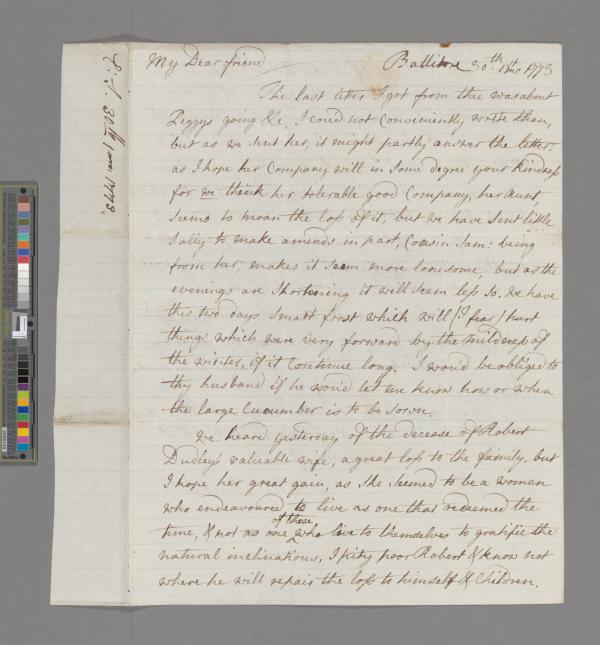 My Dear friend Ballitore 30th 1st mo 1773
The last letter I got from thee was about
Peggys going &c, I could not conveniently write then,
but as we sent her, it might partly answer the letter.
as I hope her Company will in some degree your kindness
for we think her tolerable good Company, her Aunt,
seems to moan the loss of it, but we have sent little
Sally to make amends in part, Cousin Sam: being
from her, makes it seem more lonesome, but as the
evenings are shortening it will seem less so. We have
this two days smart frost which will (I fear) hurt
things which were very forward by the mildness of
the winter, if it continue long. I wou'd be obliged to
thy husband if he wou'd let me know how or when
the large Cucumber is to be sown.
We heard yesterday of the decease of Robert
Dudleys valuable wife, a great loss to the family. but
I hope her great gain, as she seemed to be a woman
who endeavoured to live as one that redeemed the
time, & not as one of those who live to themselves to gratifie the
natural inclinations, I pity poor Robert & know not
where he will repair the loss to himself & Children.
30th 1 mo 1773.